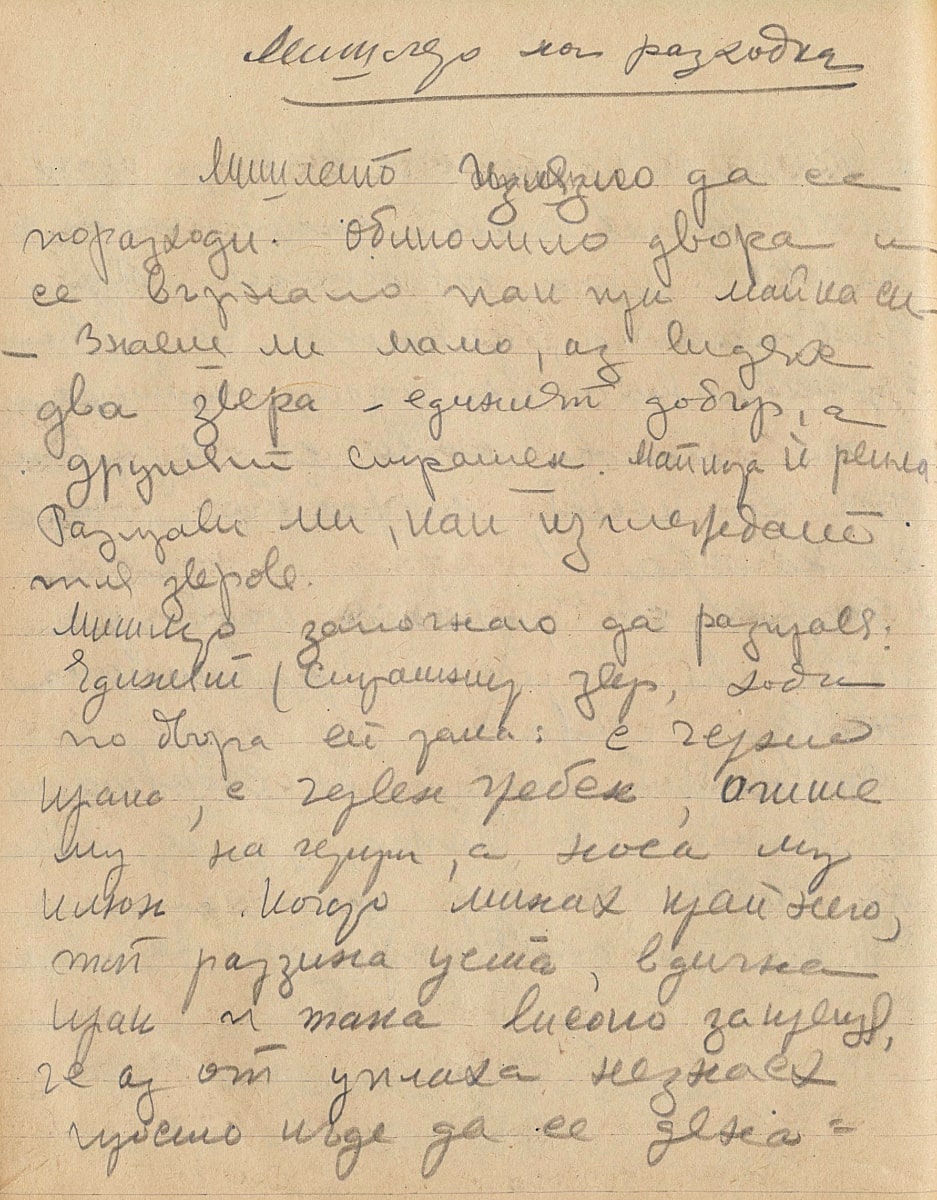 Мишлето на разходка
Мишлето излязло да се
поразходи. Обиколило двора и
се върнало пак при майка си
- Знаеш ли мамо, аз видях
два звера - единият добър, а
другият страшен. Майката ѝ рекла
Разправи ми, как изглеждат
тия зверове.
Мишлето започнало да разправя:
Единият (страшният звер, ходи
по двора ей тъй: с черни
крака, с червен гребен, очите
му на черни, а носа му
клюн. Когато минах край него,
той раззина уста, вдигна
крак и така високо закрещя,
че аз от уплаха незнаех
просто къде да се дена -